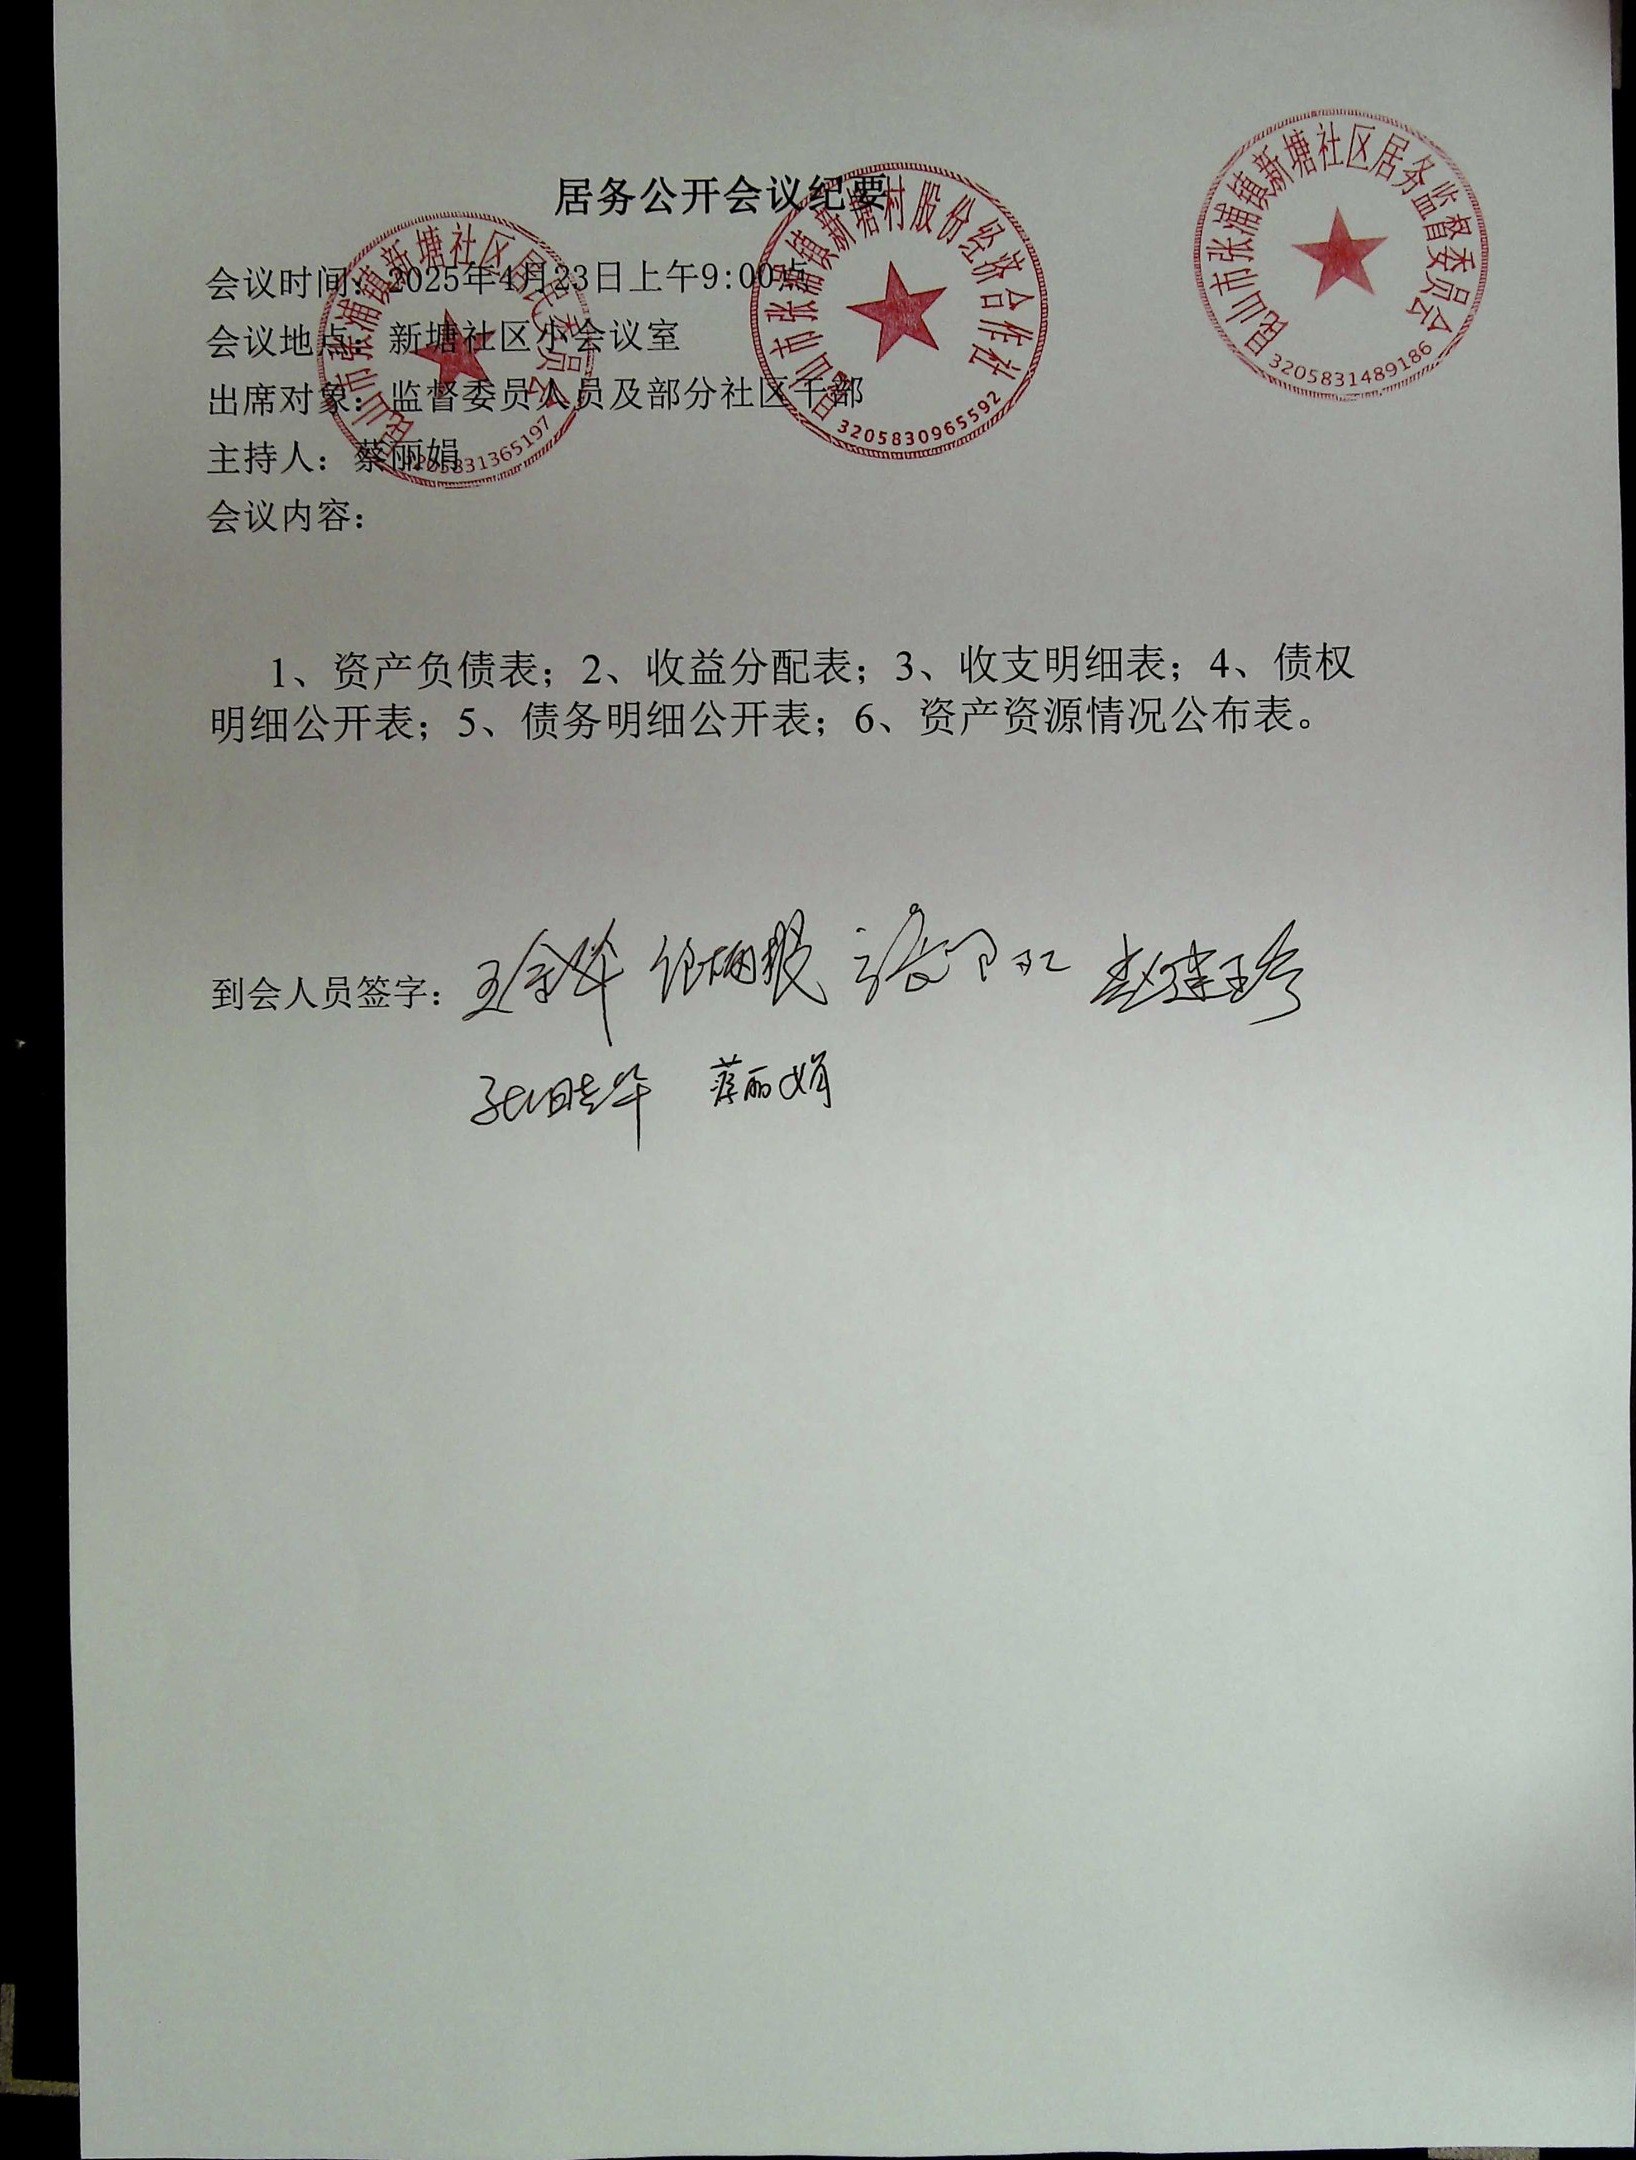 居务公开会议纪要
会议时间：2025年4月23日上午9:00点
会议地点：新塘社区小会议室
出席对象：监督委员人员及部分社区干部
主持人：蔡丽娟
会议内容：
1、资产负债表；2、收益分配表；3、收支明细表；4、债权
明细公开表；5、债务明细公开表；6、资产资源情况公布表。
到会人员签字：
蔡丽娟
昆山市张浦镇新塘社区居民委员会
3205831365197
昆山市张浦镇新塘村股份经济合作社
3205830965592
昆山市张浦镇新塘社区居务监督委员会
3205831489186